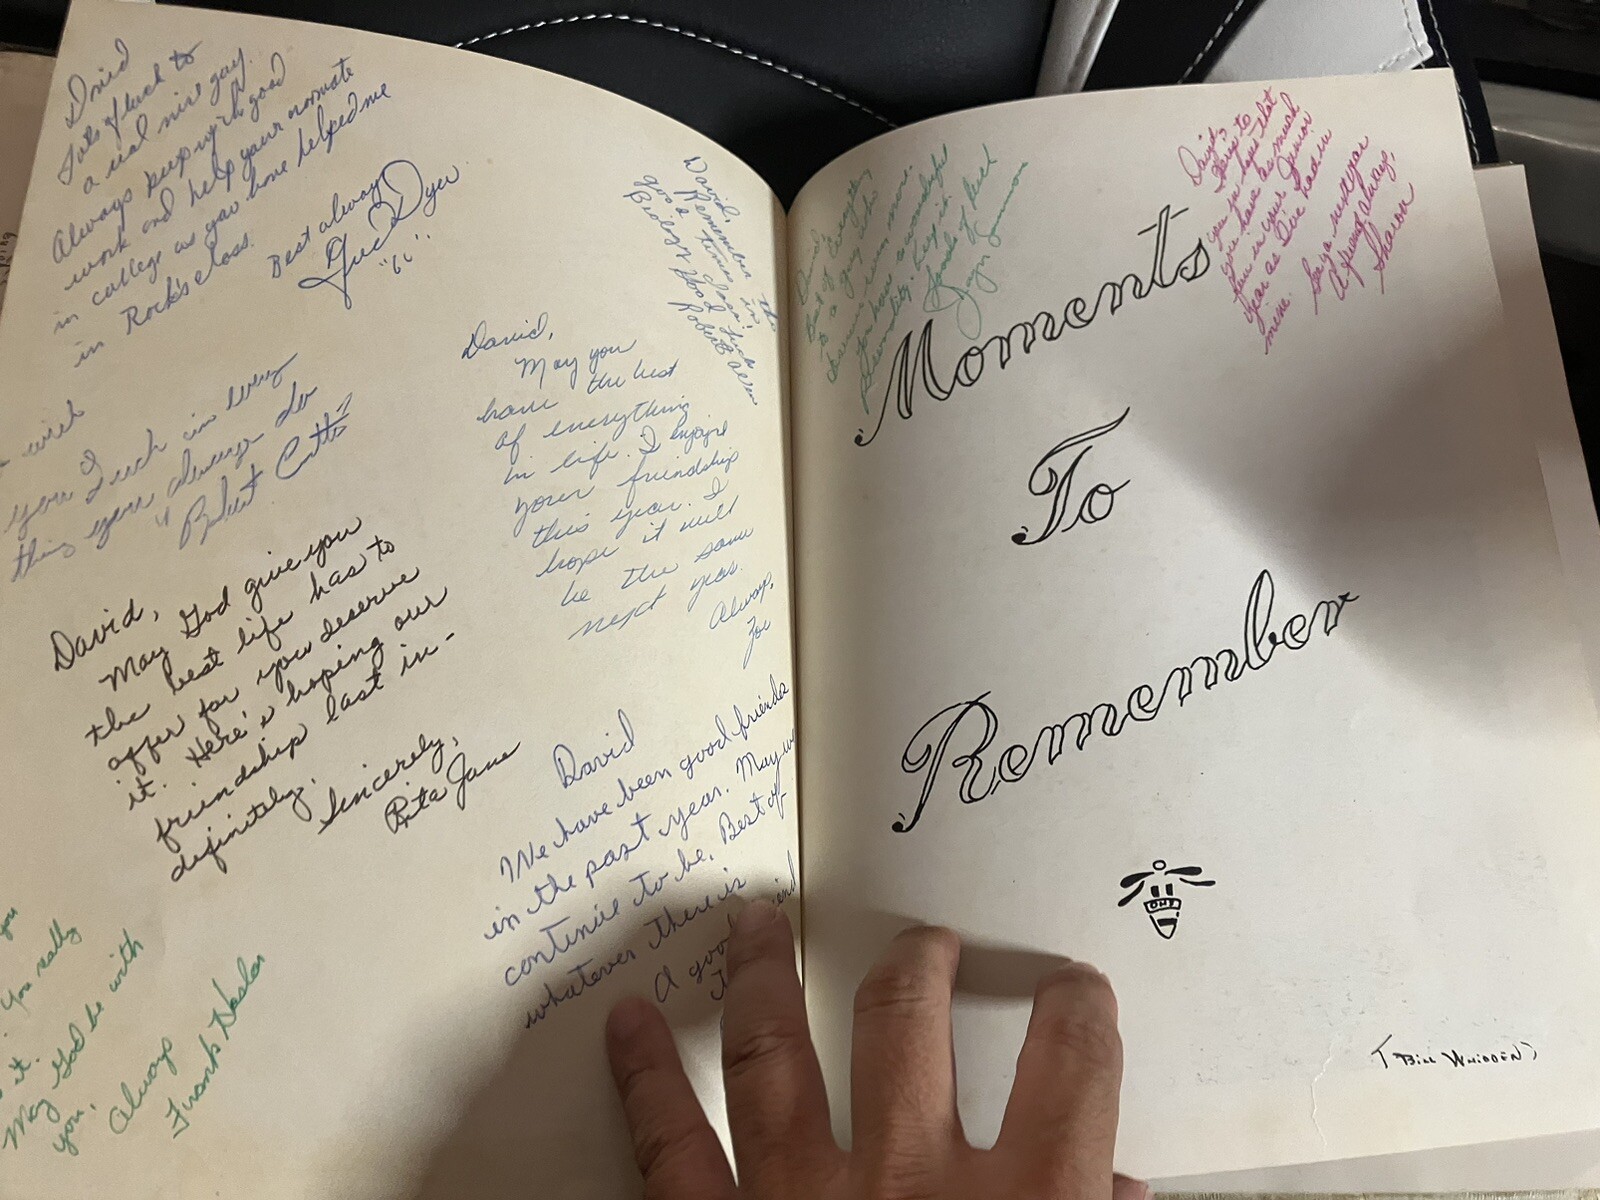 David
Lots of luck to
a real nice guy.
Always keep up the good
work and help your roommate
in college as you have helped me
in Rock's class.
Best always
Dyer
"66"
David,
Remember the
good times in
Biology class!
Good luck
Robert
wish
you luck in every
thing you always do
Robert
David,
May you
have the best
of everything
in life. I enjoyed
your friendship
this year. I
hope it will
be the same
next year.
Always,
David,
May God give you
the best life has to
offer for you deserve
it. Here's hoping our
friendship last in-
definitely.
Sincerely,
Rita Jane
David
We have been good friends
in the past year. May we
continue to be. Best of
whatever there is
A good friend
you
You really
it.
May God be with
you.
Always
Frank
David,
Best of everything
to a guy who
for now a wonderful
personality. Keep it.
Loads of luck
David,
Here's to
you in hopes that
you have as much
fun in your Junior
year as I've had in
mine. See ya next year
A friend always,
Sharon
Moments
To
Remember
OHS
(Bill Whidden)